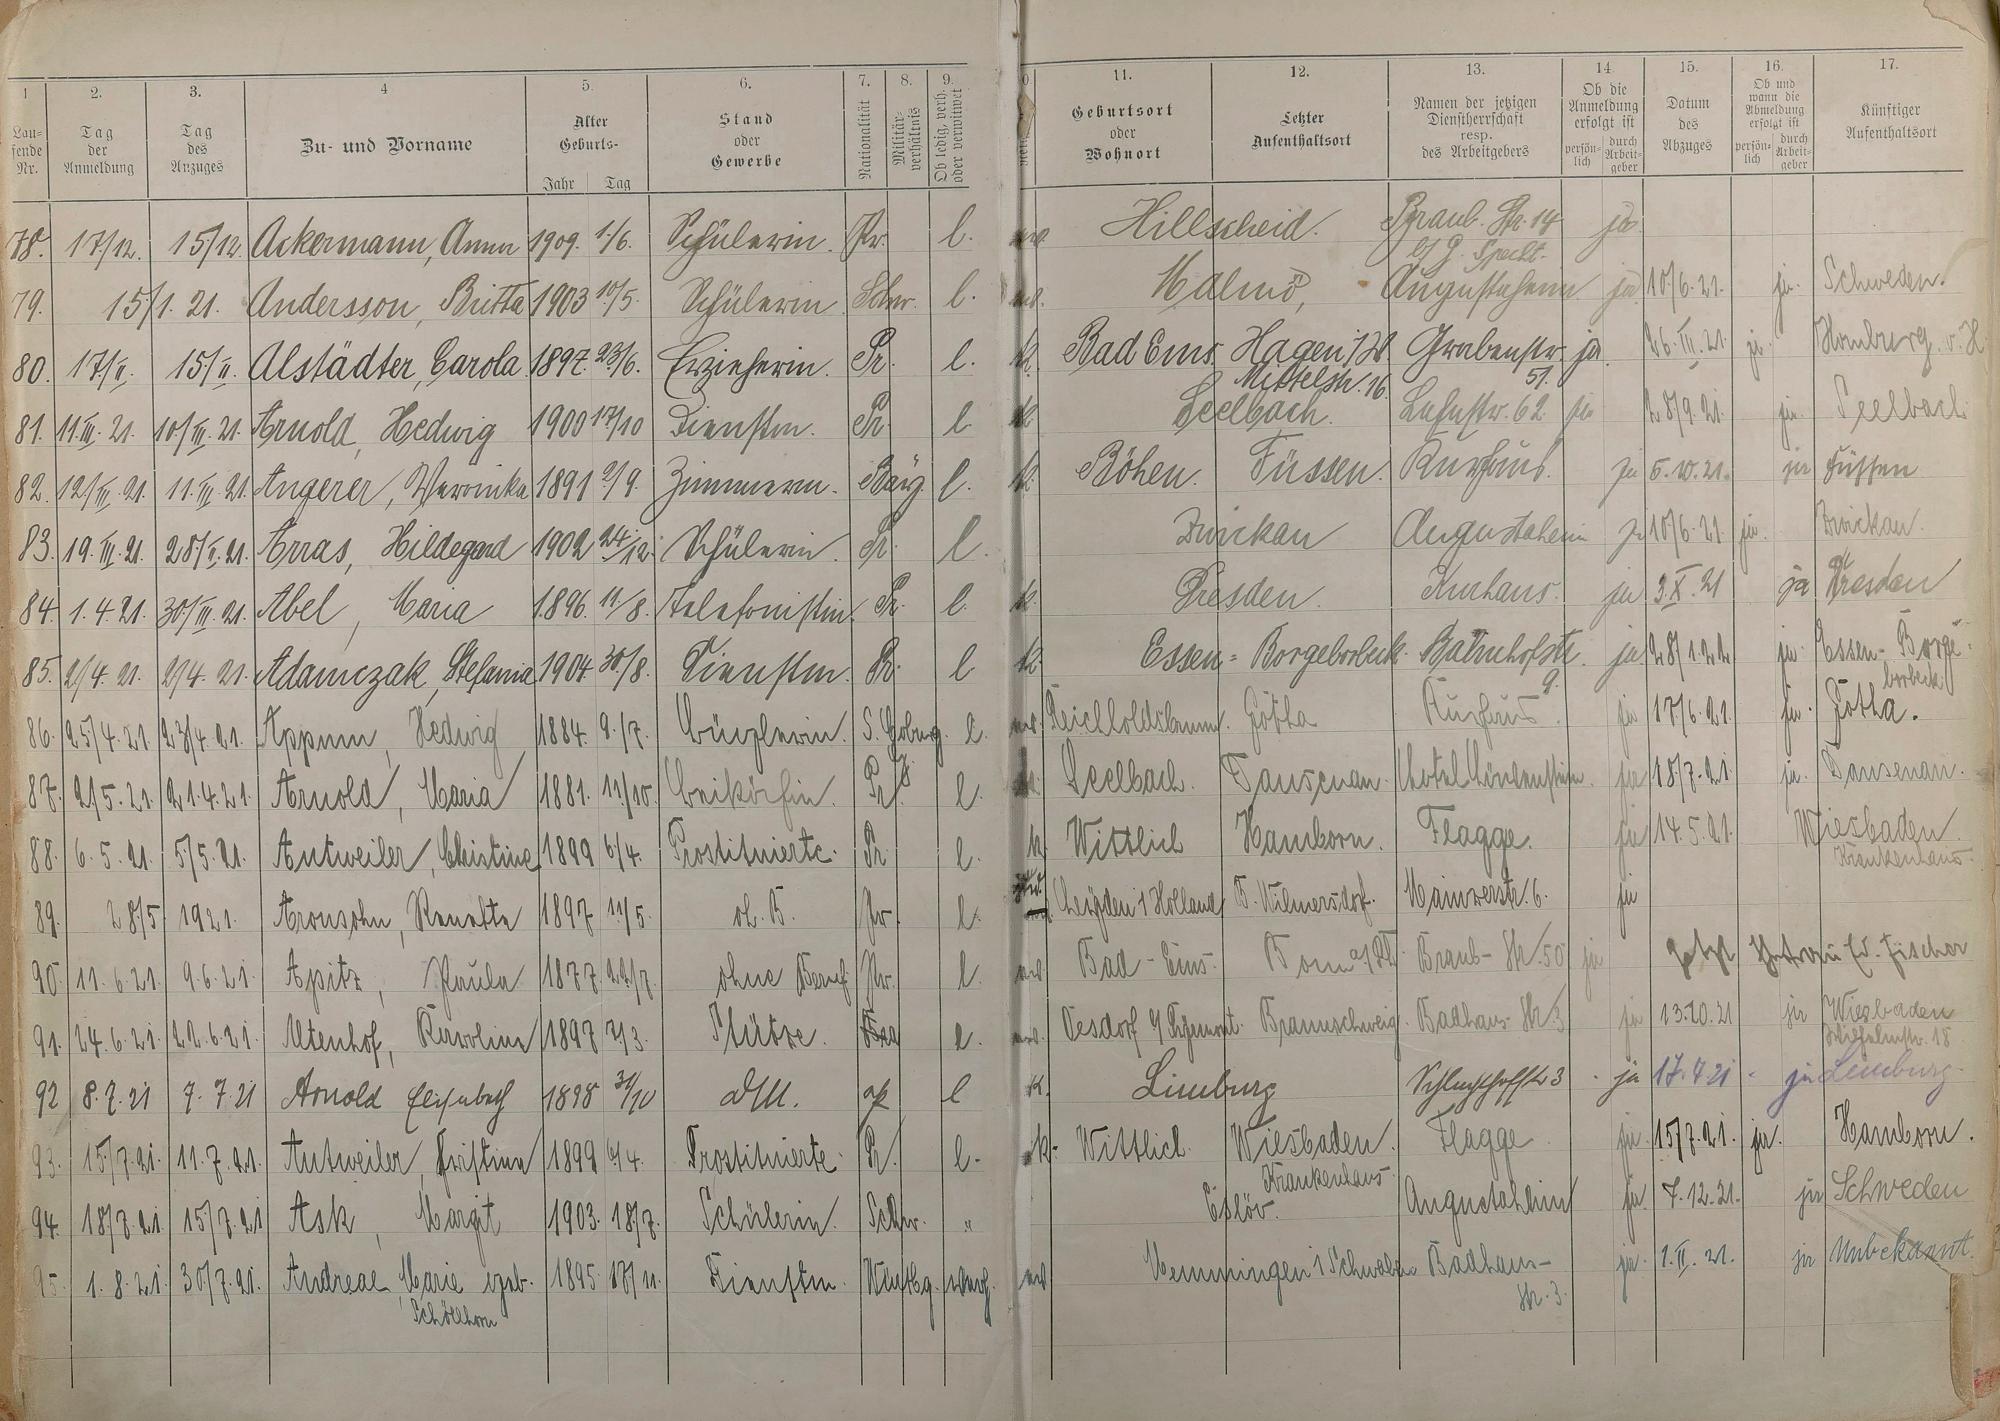 1 2. 3. 4 5. 6. 7. 8. 9. 0. 11. 12. 13. 14. 15. 16. 17.
Lau-fende Nr. Tag der Anmeldung Tag des Anzuges Zu- und Vorname Alter Geburts- Jahr Tag Stand oder Gewerbe Nationalität Militär-verhältnis Ob ledig, verh. oder verwitwet Geburtsort oder Wohnort Letzter Aufenthaltsort Namen der jetzigen Dienstherrschaft resp. des Arbeitgebers Ob die Anmeldung erfolgt ist persön-lich durch Arbeit-geber Datum des Abzuges Ob und wann die Abmeldung erfolgt ist persön-lich durch Arbeit-geber Künftiger Aufenthaltsort
78. 17/12. 15/12. Ackermann, Anna 1909. 1./6. Schülerin. Pr. l. ev. Hillscheid. Braub. Str. 14 ja
b/ G. Specht.
79. 15/1. 21. Andersson, Britta 1903 10/5. Schülerin Schw. l. ev. Malmö, Augustaheim ja 10/6. 21. ja. Schweden.
80. 17/II. 15/II. Alstädter, Carola 1897. 23/6. Erzieherin. Pr. l. k. Bad Ems. Hagen i/W. Grabenstr. ja 26. III. 21. ja. Homburg v. H
Mittelstr. 16. 51.
81. 11.III. 21. 10/III. 21. Arnold, Hedwig 1900 17/10 Dienstm. Pr. l k Seelbach. Lahnstr. 62 ja 28/9. 21. ja. Seelbach
82. 12/III. 21. 11. III. 21. Angerer, Weronika 1891 2/9. Zimmerm. Bay l. k. Böhen. Füssen. Kurhaus. ja 5. 10. 21. ja Füssen
83. 19. III. 21. 28/II. 21. Arras, Hildegard 1902 24/12. Schülerin. Pr. l. Zwickau Augustaheim ja 10/6. 21. ja. Zwickau.
84. 1. 4. 21. 30/III. 21. Abel, Maria 1896. 11/8. Telefonistin. Pr. l. k. Dresden. Kurhaus. ja 3. X. 21 ja Dresden
85. 2/4. 21. 2/4. 21. Adamczak, Stefania 1904 30/8. Dienstm. Pr. l k. Essen-Borgeborbeck. Bahnhofstr. ja 28/1. 22 ja. Essen-Borge-
9. borbeck.
86. 25/4. 21. 23/4. 21. Appum, Hedwig 1884. 9./7. Büglerin. S. Coburg. l. ev. Gotha Kurhaus. ja 17/6. 21. ja. Gotha.
87. 2/5. 21. 21. 4. 21. Arnold, Maria 1881. 11/10. Beiköchin. Pr. l. Seelbach. Dausenau. Hotel Löwenstein. ja 18/7. 21. ja. Dausenau.
88. 6. 5. 21. 5/5. 21. Antweiler, Christine 1899 6/4. Prostituierte. Pr l. k. Wittlich Hamborn. Flagge. ja 14. 5. 21. Wiesbaden.
Krankenhaus.
89. 28/5 1921. Aronsohn, Renatte 1897 11/5. oh. B. Pr. l. Leyden i Holland B. Wilmersdorf. Mainzerstr. 6. ja
90 11. 6. 21. 9. 6. 21. Apitz, Paula 1877 22/7. ohne Beruf Pr. l. ev. Bad-Ems. Bonn a/Rh. Braub-Str. 50 ja jetzt Ehefrau Ed. Fischer
91. 24. 6. 21. 22. 6. 21. Altenhof, Karoline 1897 7/3. Stütze. l. ev. Oesdorf b/ Pyrmont. Braunschweig. Badhaus-Str. 3 ja 13. 10. 21 ja Wiesbaden
Wilhelmstr. 18
92 8. 7. 21 7. 7. 21 Arnold Elisabeth 1898 31/10 DM. l k. Limburg Schlachthofstr 3 ja 17. 7 21 ja Limburg.
93. 15/7. 21. 11. 7. 21. Antweiler, Kristina 1899 6/4. Prostituierte. Pr. l. k. Wittlich. Wiesbaden. Flagge. ja. 15/7. 21. ja. Hamborn.
Krankenhaus
94. 18/7. 21. 15/7. 21 Ask, Margit 1903. 18/7. Schülerin. Schw. „ Eslöv. Augustaheim ja. 7. 12. 21. ja Schweden
95. 1. 8. 21. 30/7. 21. Andreae Marie geb. 1895 17/11. Dienstm. Württbg. verh. ev Memmingen i Schwaben Badhaus- ja. 1. II. 21. ja Unbekannt.
Schöllhorn Str. 3.